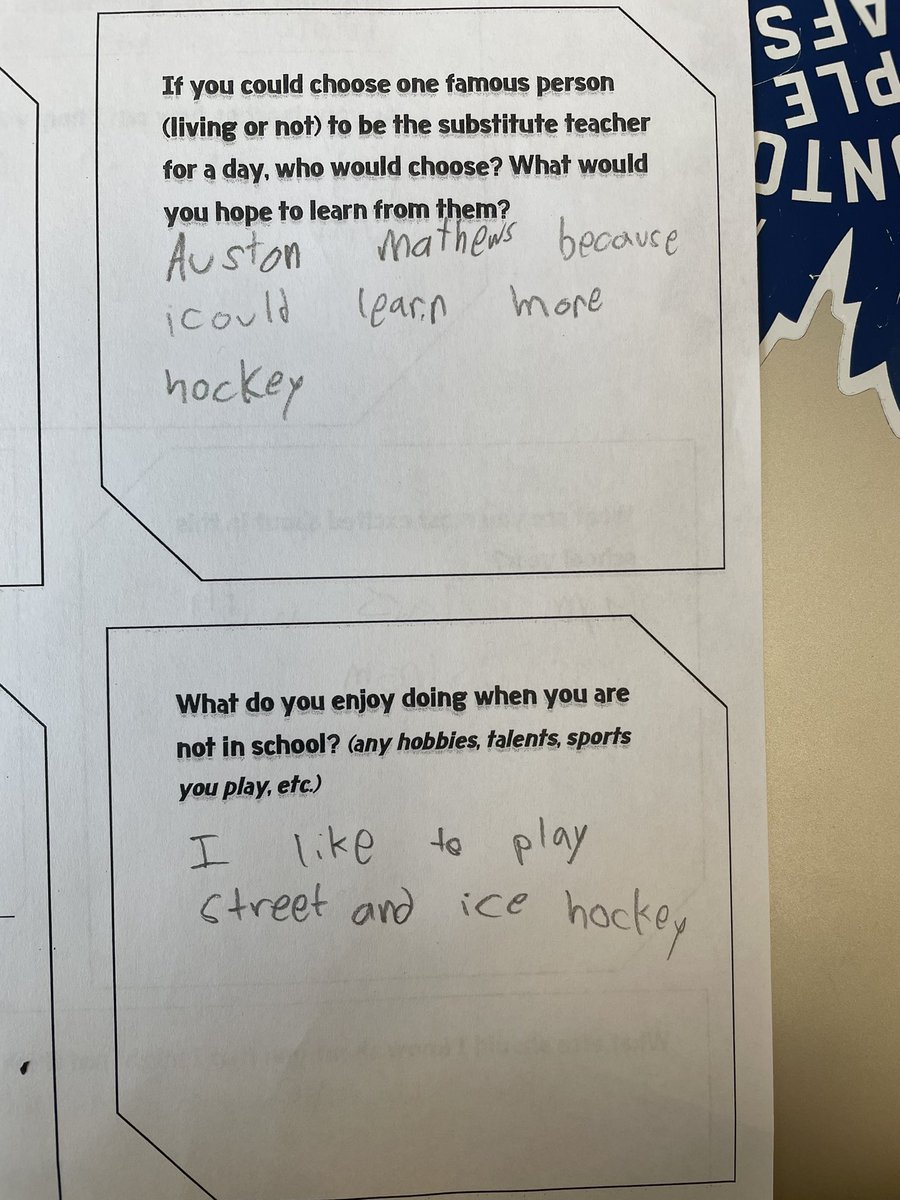 If you could choose one famous person
(living or not) to be the substitute teacher
for a day, who would choose? What would
you hope to learn from them?
Auston Mathews because
icould learn more
hockey
What do you enjoy doing when you are
not in school? (any hobbies, talents, sports
you play, etc.)
I like to play
street and ice hockey